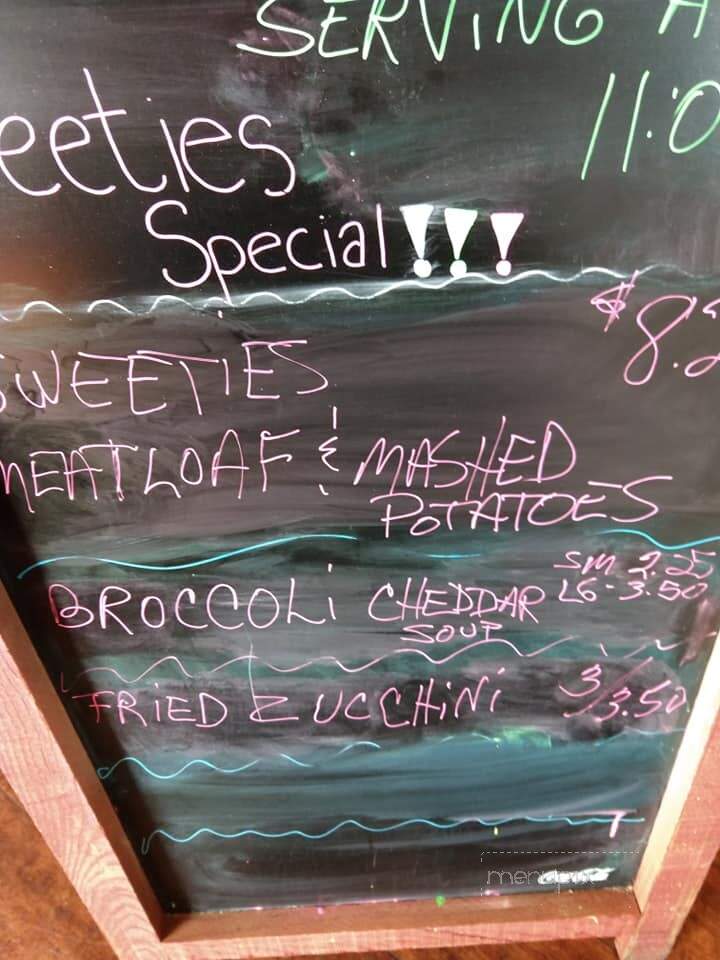 SERVING A
11:0
eeties
Special!!!
SWEETIES $8.2
MEATLOAF & MASHED
POTATOES
BROCCOLI CHEDDAR SOUP SM 2.25
LG-3.50
FRIED ZUCCHINI 3/3.50
menupix